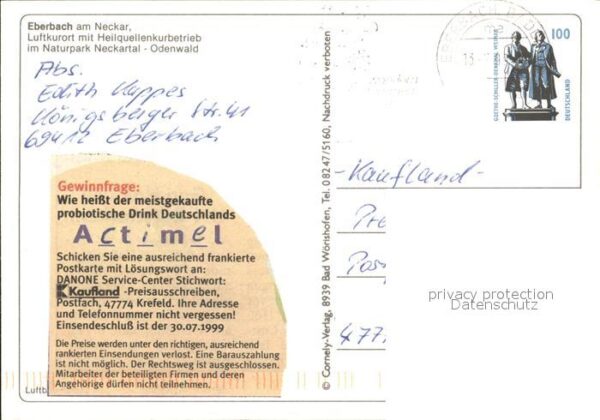 Eberbach am Neckar,
Luftkurort mit Heilquellenkurbetrieb
im Naturpark Neckartal - Odenwald
Abs.
Edith Kappes
Königsberger Str. 41
69412 Eberbach
Gewinnfrage:
Wie heißt der meistgekaufte
probiotische Drink Deutschlands
Actimel
Schicken Sie eine ausreichend frankierte
Postkarte mit Lösungswort an:
DANONE Service-Center Stichwort:
Kaufland -Preisausschreiben,
Postfach, 47774 Krefeld. Ihre Adresse
und Telefonnummer nicht vergessen!
Einsendeschluß ist der 30.07.1999
Die Preise werden unter den richtigen, ausreichend
rankierten Einsendungen verlost. Eine Barauszahlung
ist nicht möglich. Der Rechtsweg ist ausgeschlossen.
Mitarbeiter der beteiligten Firmen und deren
Angehörige dürfen nicht teilnehmen.
Luftb
© Cornely-Verlag, 8939 Bad Wörishofen, Tel. 08247/5160, Nachdruck verboten
EBERBACH
13
100
GOETHE-SCHILLER-DENKMAL WEIMAR
DEUTSCHLAND
-Kaufland-
Pre
Pos
477
privacy protection
Datenschutz